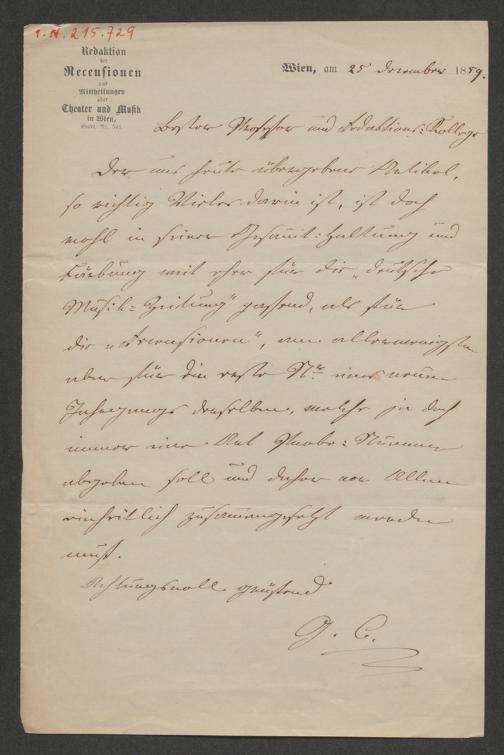 I.N. 215.729
Redaktion
der
Recensionen
und
Mittheilungen
über
Theater und Musik
in Wien,
Wien, am 25 Dezember 1859.
Bester Professor und Redaktions-Kollege
Der uns heute übergebene Artikel,
so richtig Vieles darin ist, ist doch
wohl in seiner Gesamt-Haltung und
Färbung weit eher für die „deutsche
Musik-Zeitung" passend, als für
die „Recensionen", am allerwenigsten
aber für die erste Nr. eines neuen
Jahrgangs derselben, welche ja doch
immer eine Art Probe-Nummer
abgeben soll und daher vor Allem
einheitlich zusammengesetzt werden
muß.
Achtungsvoll grüßend